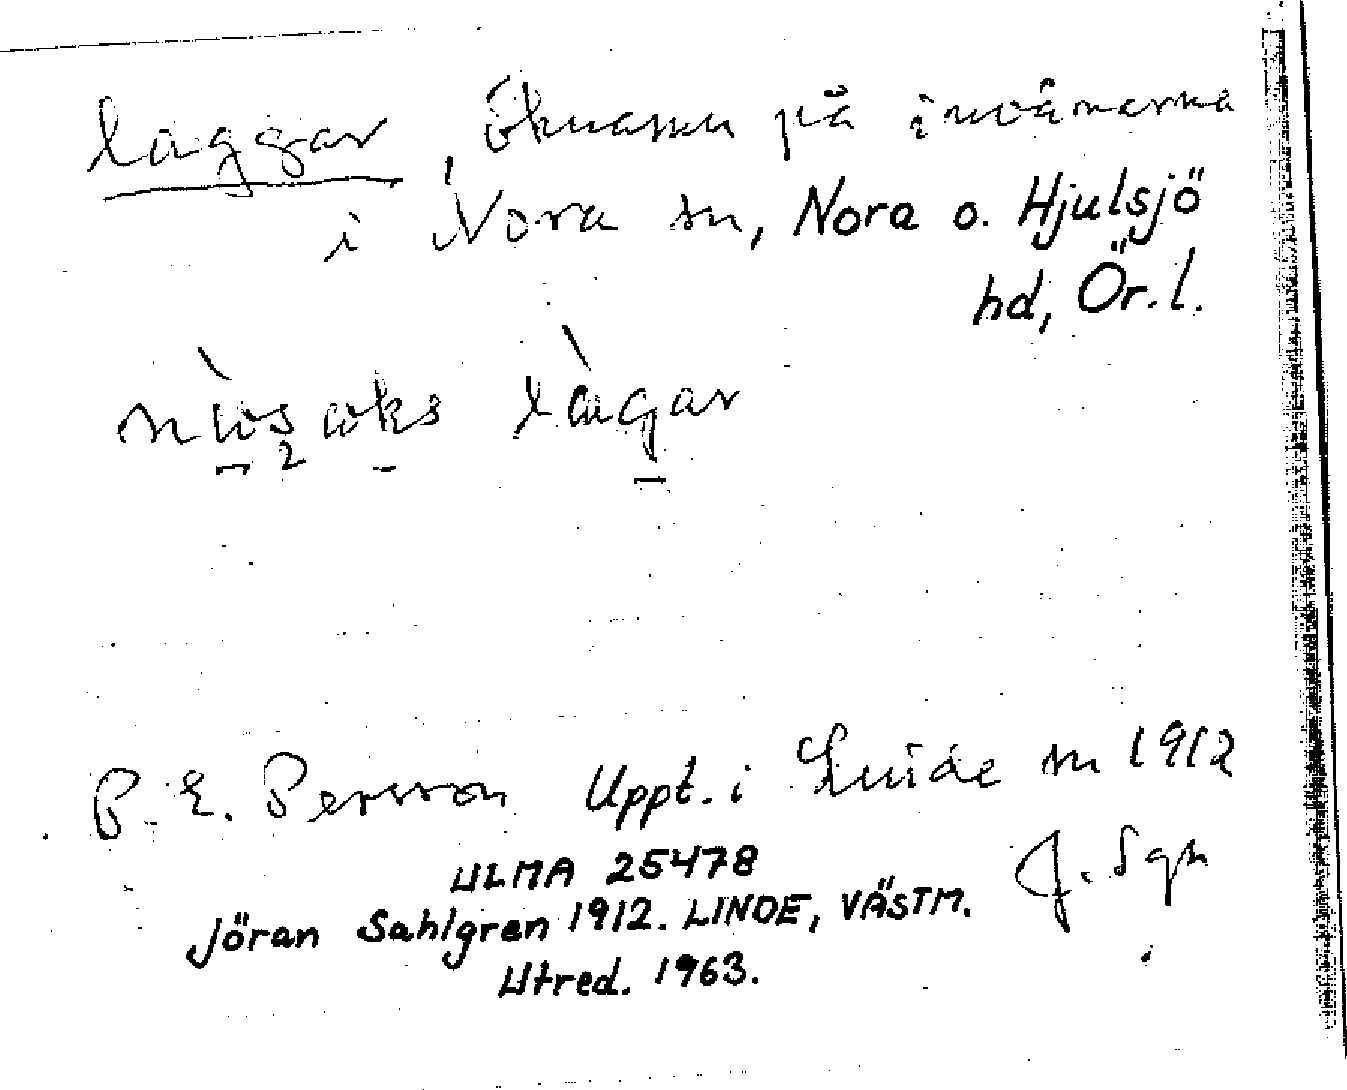 laggar, öknamn på invånarna
i Nora sn, Nora o. Hjulsjö
hd, Ör. l.
làgar
P. E. Persson Uppt. i Linde sn 1912
J. Sgn
ULMA 25478
Jöran Sahlgren 1912. LINDE, VÄSTM.
Utred. 1963.